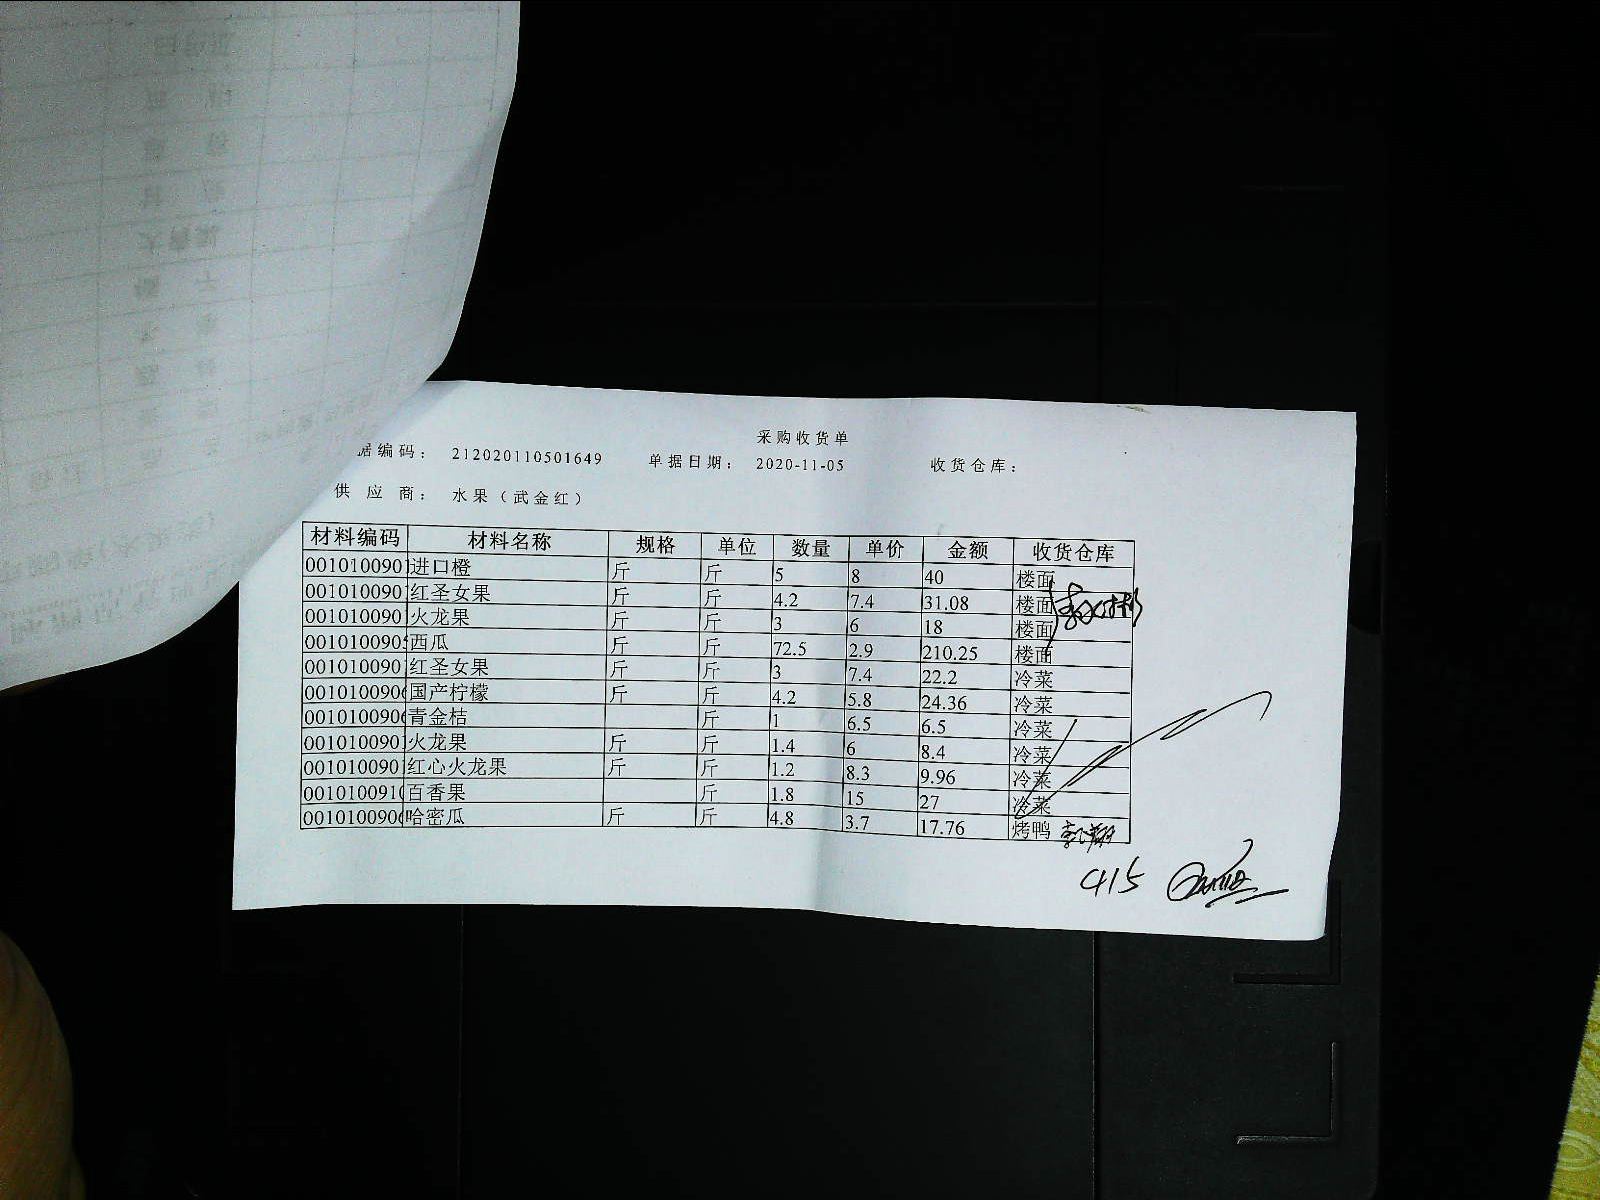 采购收货单
据编码： 212020110501649 单据日期： 2020-11-05 收货仓库：
供应商： 水果（武金红）
材料编码 材料名称 规格 单位 数量 单价 金额 收货仓库
001010090 进口橙 斤 斤 5 8 40 楼面
001010090 红圣女果 斤 斤 4.2 7.4 31.08 楼面
001010090 火龙果 斤 斤 3 6 18 楼面
001010090 西瓜 斤 斤 72.5 2.9 210.25 楼面
001010090 红圣女果 斤 斤 3 7.4 22.2 冷菜
001010090 国产柠檬 斤 斤 4.2 5.8 24.36 冷菜
001010090 青金桔 斤 1 6.5 6.5 冷菜
001010090 火龙果 斤 斤 1.4 6 8.4 冷菜
001010090 红心火龙果 斤 斤 1.2 8.3 9.96 冷菜
001010091 百香果 斤 1.8 15 27 冷菜
001010090 哈密瓜 斤 斤 4.8 3.7 17.76 烤鸭
415